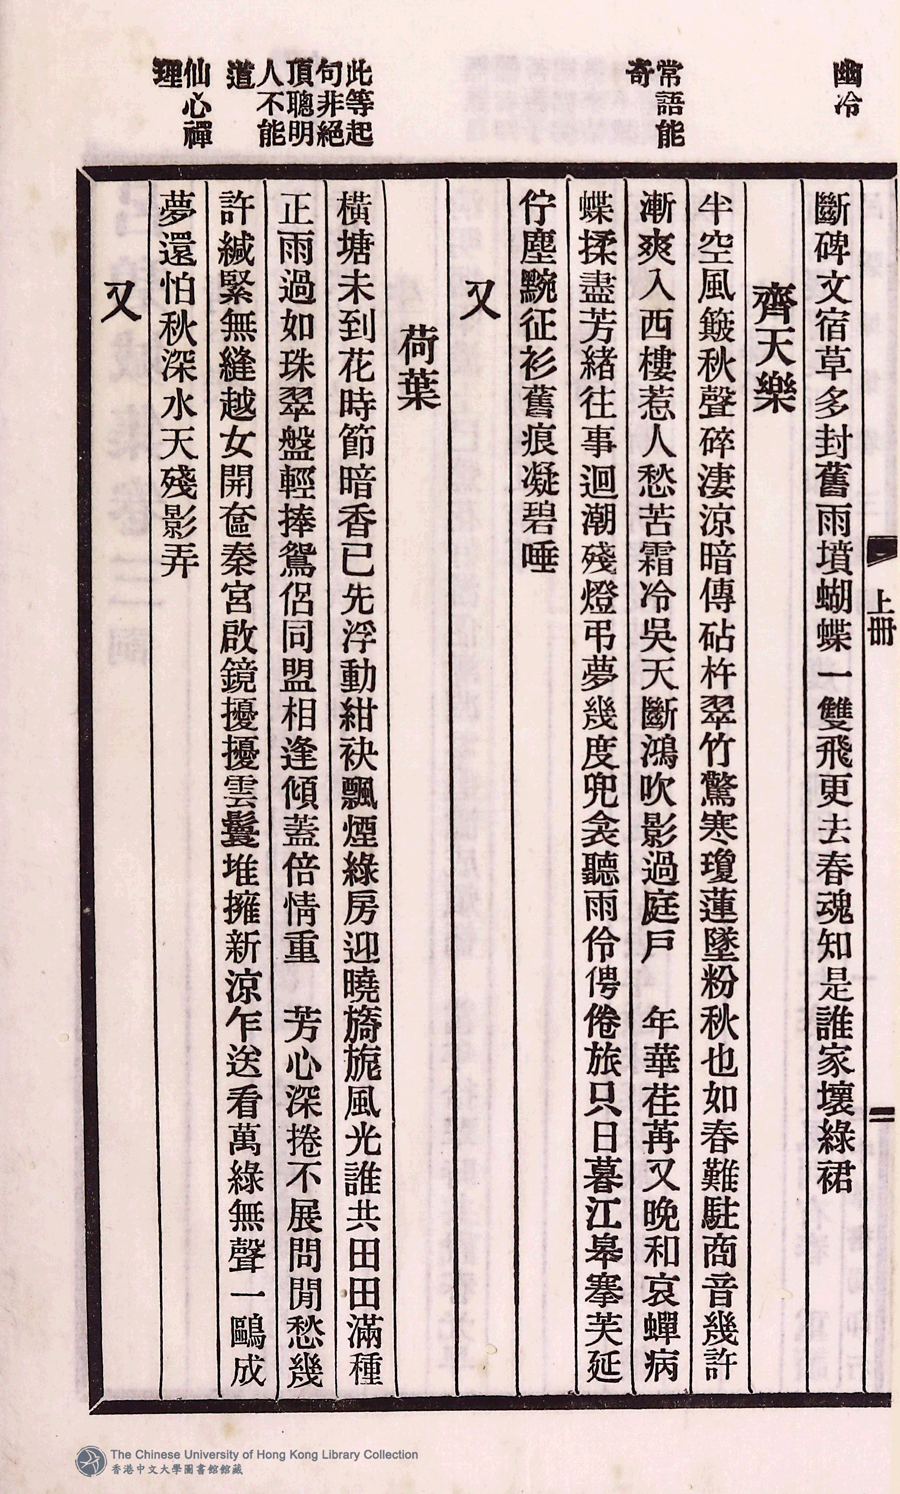 幽冷
常語能
奇
此等起
句非絕
頂聰明
人不能
道
仙心禪
理
上冊
二
斷碑文宿草多封舊雨墳蝴蝶一雙飛更去春魂知是誰家壞綠裙
齊天樂
半空風簸秋聲碎淒涼暗傳砧杵翠竹驚寒瓊蓮墜粉秋也如春難駐商音幾許
漸爽入西樓惹人愁苦霜冷吳天斷鴻吹影過庭戶　年華荏苒又晚和哀蟬病
蝶揉盡芳緒往事迴潮殘燈弔夢幾度兜衾聽雨伶俜倦旅只日暮江皋搴芙延
佇塵黦征衫舊痕凝碧唾
又
荷葉
橫塘未到花時節暗香已先浮動紺袂飄煙綠房迎曉旖旎風光誰共田田滿種
正雨過如珠翠盤輕捧鴛侶同盟相逢傾蓋倍情重　芳心深捲不展問閒愁幾
許緘緊無縫越女開奩秦宮啟鏡擾擾雲鬟堆擁新涼乍送看萬綠無聲一鷗成
夢還怕秋深水天殘影弄
又
The Chinese University of Hong Kong Library Collection
香港中文大學圖書館館藏